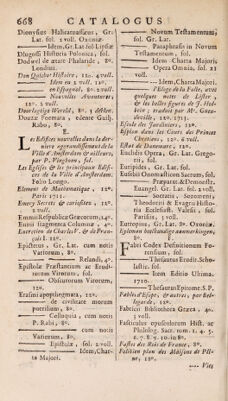 668 CATALOGUS
Dionysius Halicarnasseus, Gr.
Lat. sol. 2 voll. Oxon.
Idem, Gr. Lat. sol. Lipsiæ
Dlugossi Historia Polonica, sol.
Dodwel de ætate Phalaride, 8o.
Londini.
Don Quixot Histoire, 12o. 4 voll.
Idem en 2 voll. 12o.
en Espagnol, 8o. 2 voll.
Nouvelles Avantures,
12o. 2 voll.
8o. 3 deelen.
edente Guilj.
Rabo, 8o.
E.
Les Edifices nouvelles dans la der-
niere agrandissement de la
Ville d'Amsterdam & ailleurs,
par P. Vingboon, sol.
Les Eglises & les principaux Edifi-
ces de la Ville d'Amsterdam.
Folio Longo.
Element de Mathematique, 12o.
Paris 1731.
Energy Secrets de caristies, 12o.
2 voll.
Emmii Respublicæ Græcorum, 24o.
Ennii fragmenta Columnæ, 4o.
Entretien de Charles V. & de Fran-
çois I. 12o.
Epictetus, Gr. Lat. cum notis
Variorum, 8o.
Relandi, 4o.
Epistolæ Præstantium ac Erudi-
torum Virorum, sol.
Obscurorum Virorum,
12o.
Erasmi apophtegmata, 12o.
de civilitate morum
puerilium, 8o.
Colloquia, cum notis
P. Rabi, 8o.
cum notis
Variorum, 8o.
Epistolæ, sol. 2 voll.
Idem, Char-
ta Majori.
Novum Testamentum,
sol. Gr. Lat.
Paraphrasis in Novum
Testamentum, sol.
Idem Charta Majori
Opera Omnia, sol. 11
voll.
Idem, Charta Majori.
l'Eloge de la Folie, avec
quelques notes de Lister &
& les belles figures de J. Hol-
bein; traduit par Mr. Gueu-
deville, 1713. 12o.
Esprit des Jansenistes, 12o.
Espion dans les Cours des Princes
Chretiens, 12o. 6 voll.
Etat de Danemarc, 12o.
Euclidis Opera, Gr. Lat. Gregorii,
sol.
Euripides, Gr. Lat. sol.
Eusebii Onomasticon Sacrum, sol.
Præparatio & Demonstr.
Euangel. Gr. Lat. sol. 2 voll.
Socratis, Zozomeni,
Theodoriti & Evagrii Histo-
ria Ecclesiast. Valesii, sol.
Parisiis, 3 voll.
Eutropius, Gr. Lat. 8o. Oxoniæ.
8o.
F.
Fabri Codex Definitionum Fo-
rensium, sol.
Thesaurus Erudit. Scho-
lastic. sol.
Idem Editio Ultima.
1710.
Thesaurus Epitome. 8. P.
Fables d'Esope, & autres, par Bel-
legarde, 12o.
Fabricii Bibliotheca Græca, 4o.
3 voll.
Fasciculus opusculorum Hist. ac
Philolog. Sacr. tom. 1. 4. 5.
6. 7. 8. 9. 10. in 8o.
Fastes des Rois de France, 8o.
Fastidien plan des Maisons de Pli-
ne, 12o.